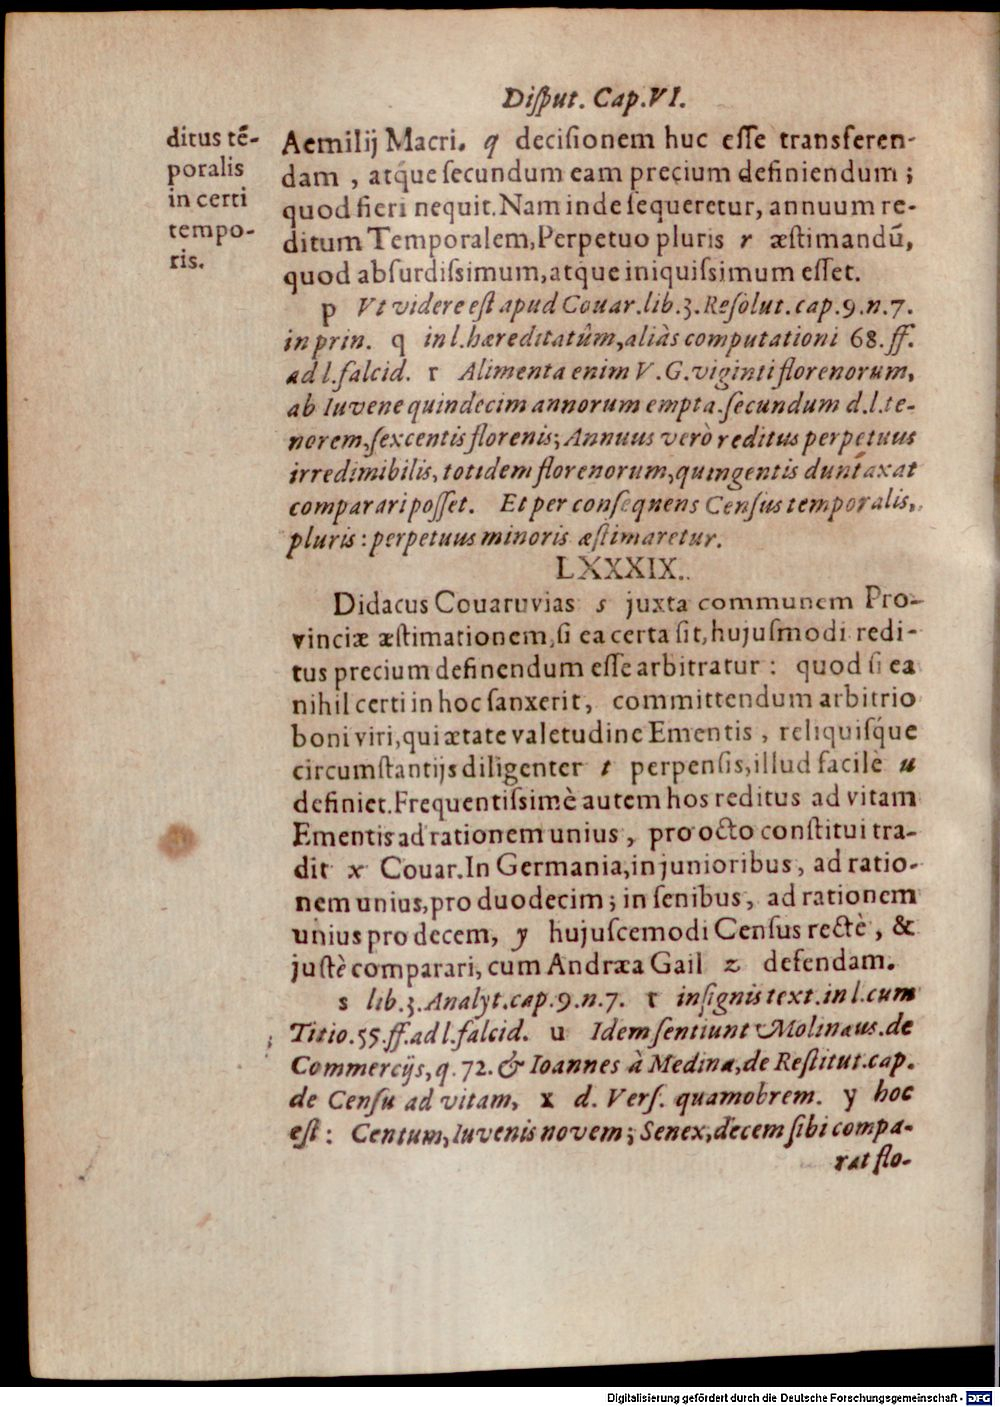 Disput. Cap.VI.
ditus tẽ-
poralis
in certi
tempo-
ris.
Aemilij Macri. q decisionem huc esse transferen-
dam , atq́ue secundum eam precium definiendum ;
quod fieri nequit. Nam inde sequeretur, annuum re-
ditum Temporalem, Perpetuo pluris r æstimandũ,
quod absurdissimum, atque iniquissimum esset.
p Vt videre est apud Couar. lib. 3. Resolut. cap. 9. n. 7.
in prin. q in l. hæreditatûm, aliàs computationi 68. ff.
ad l. falcid. r Alimenta enim V. G. viginti florenorum,
ab Iuvene quindecim annorum empta. secundum d. l. te-
norem, sexcentis florenis; Annuus verò reditus perpetuus
irredimibilis, totidem florenorum, quingentis duntaxat
comparari posset. Et per consequens Census temporalis,
pluris : perpetuus minoris æstimaretur.
LXXXIX.
Didacus Couaruvias s juxta communem Pro-
vinciæ æstimationem, si ea certa sit, hujusmodi redi-
tus precium definendum esse arbitratur : quod si ea
nihil certi in hoc sanxerit, committendum arbitrio
boni viri, qui ætate valetudine Ementis , reliquisq́ue
circumstantijs diligenter t perpensis, illud facilè u
definiet. Frequentissimè autem hos reditus ad vitam
Ementis ad rationem unius , pro octo constitui tra-
dit x Couar. In Germania, in junioribus , ad ratio-
nem unius, pro duodecim ; in senibus , ad rationem
unius pro decem, y hujuscemodi Census rectè , &
justè comparari, cum Andræa Gail z defendam.
s lib. 3. Analyt. cap. 9. n. 7. t insignis text. in l. cum
Titio. 55. ff. ad l. falcid. u Idem sentiunt Molinæus. de
Commercijs, q. 72. & Ioannes à Medina, de Restitut. cap.
de Censu ad vitam, x d. Vers. quamobrem. y hoc
est : Centum, Iuvenis novem ; Senex, decem sibi compa-
rat flo-
Digitalisierung gefördert durch die Deutsche Forschungsgemeinschaft - DFG